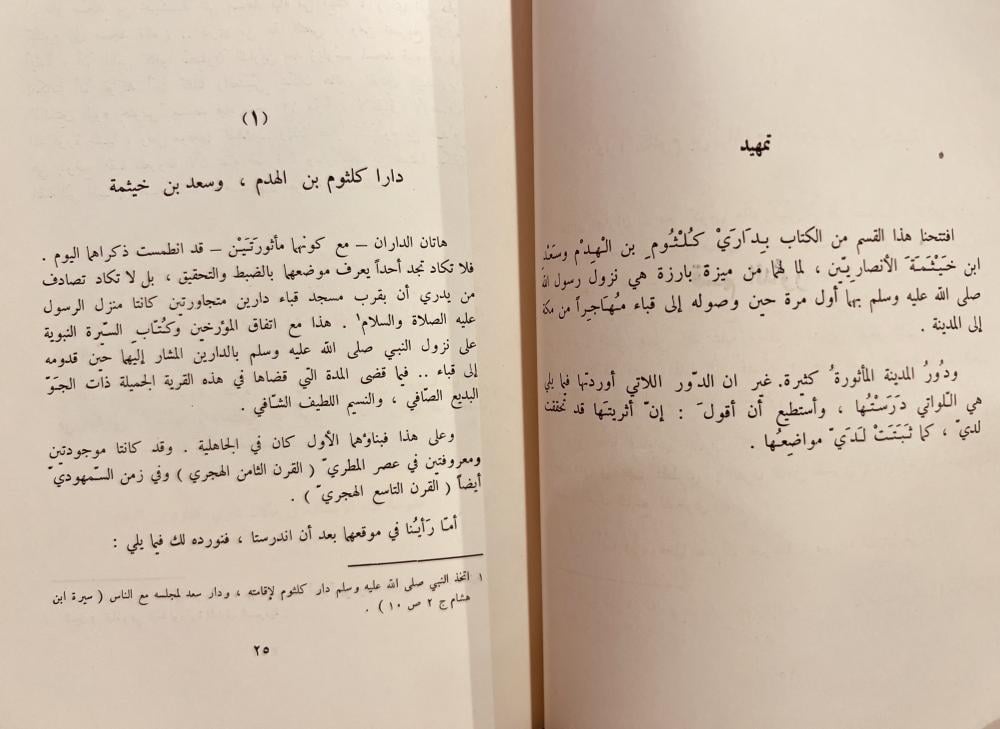 تمهيد
افتتحنا هذا القسم من الكتاب بِدَارَيْ كُلْثُومِ بن الْهِدْم وسَعْد
ابن خَيْثَمَةَ الأنصاريّين ، لما لهما من ميزة بارزة هي نزول رسول الله
صلى الله عليه وسلم بهما أول مرة حين وصوله إلى قباء مُهَاجِراً من مكة
إلى المدينة .
ودُورُ المدينة المأثورةُ كثيرة. غير ان الدّور اللاتي أوردتها فيما يلي
هي اللّواتي دَرَسْتُها ، وأستطيع أن أقولَ : إنّ أثريتَها قد تحققت
لديّ ، كما ثَبَتَتْ لَدَيّ مواضِعُها .
(١)
دارا كلثوم بن الهدم ، وسعد بن خيثمة
هاتان الداران – مع كونهما مأثورَتَيْن – قد انطمست ذكراها اليوم .
فلا تكاد تجد أحداً يعرف موضعها بالضبط والتحقيق ، بل لا تكاد تصادف
من يدري أن بقرب مسجد قباء دارين متجاورتين كانتا منزل الرسول
عليه الصلاة والسلام١ . هذا مع اتفاق المؤرخين وكُتّابِ السّيرة النبوية
على نزول النبي صلى الله عليه وسلم بالدارين المشار إليهما حين قدومه
إلى قباء .. فيما قضى المدة التي قضاها في هذه القرية الجميلة ذات الجَوّ
البديع الصّافي ، والنسيم اللطيف الشّافي .
وعلى هذا فبناؤهما الأول كان في الجاهلية . وقد كانتا موجودتين
ومعروفتين في عصر المطريّ ( القرن الثامن الهجري ) وفي زمن السّمهوديّ
أيضاً ( القرن التاسع الهجريّ ) .
أمّا رَأيُنا في موقعهما بعد أن اندرستا ، فنورده لك فيما يلي :
١ اتخذ النبي صلى الله عليه وسلم دار كلثوم لإقامته ، ودار سعد لمجلسه مع الناس ( سيرة ابن
هشام ج ٢ ص ١٠ ) .
٢٥